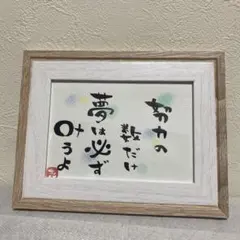 努力の
数だけ
夢は必ず
叶うよ